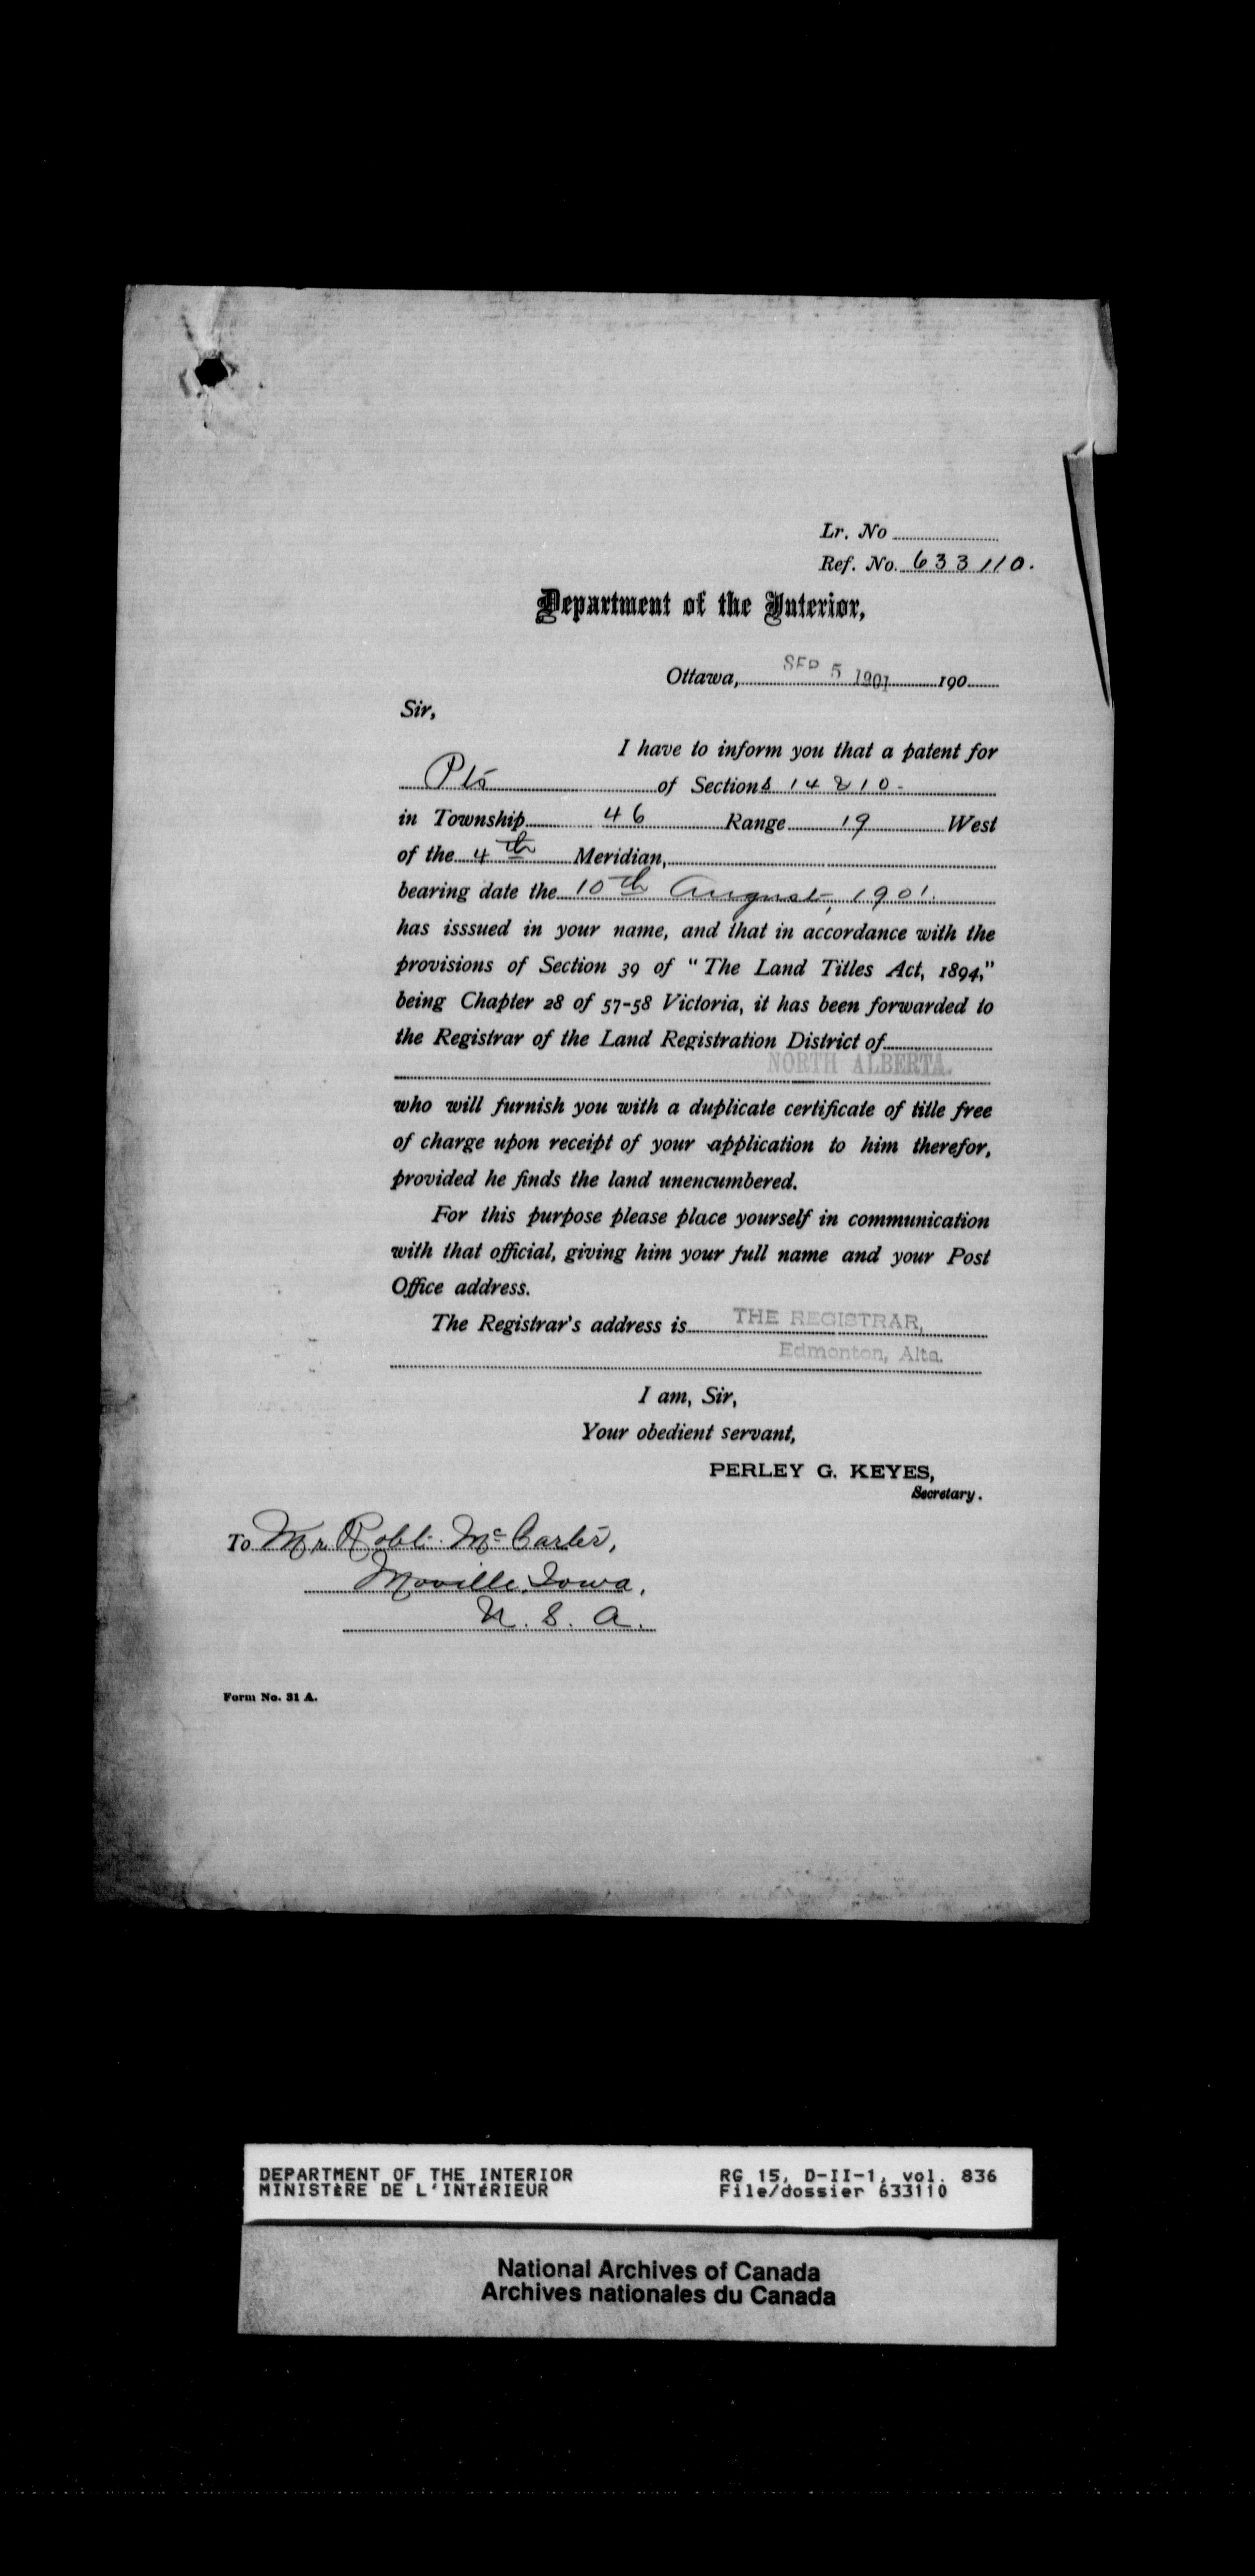 Lr. No
Ref. No. 633110.
Department of the Interior,
Ottawa, SEP 5 1901 190
Sir,
I have to inform you that a patent for
Pts of Sections 14 & 10-
in Township 46 Range 19 West
of the 4th Meridian,
bearing date the 10th August, 1901.
has isssued in your name, and that in accordance with the
provisions of Section 39 of "The Land Titles Act, 1894,"
being Chapter 28 of 57-58 Victoria, it has been forwarded to
the Registrar of the Land Registration District of
NORTH ALBERTA.
who will furnish you with a duplicate certificate of title free
of charge upon receipt of your application to him therefor,
provided he finds the land unencumbered.
For this purpose please place yourself in communication
with that official, giving him your full name and your Post
Office address.
The Registrar's address is THE REGISTRAR,
Edmonton, Alta.
I am, Sir,
Your obedient servant,
PERLEY G. KEYES,
Secretary.
To Mr. Robt. McCarter,
Moville, Iowa,
U. S. A.
Form No. 31 A.
DEPARTMENT OF THE INTERIOR RG 15, D-II-1, vol. 836
MINISTÈRE DE L'INTÉRIEUR File/dossier 633110
National Archives of Canada
Archives nationales du Canada